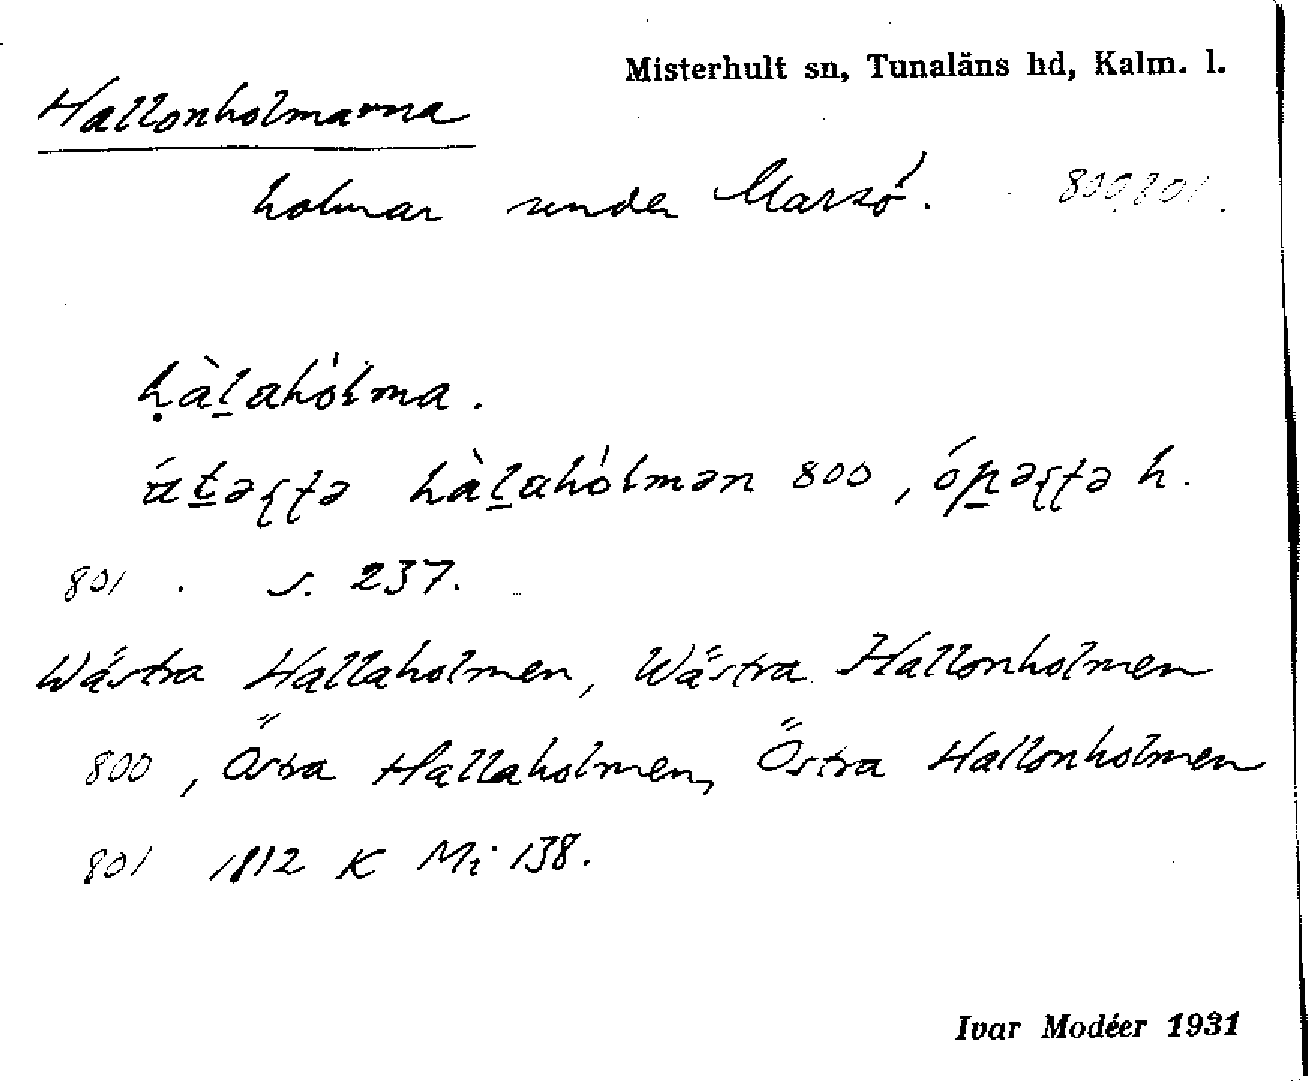 Misterhult sn, Tunaläns hd, Kalm. l.
Hallonholmarna
holmar under Marsö. 800, 801.
hàlahólma.
hàlahólmən 800, h.
801. s. 237.
Wästra Hallaholmen, Wästra Hallonholmen
800, Östra Hallaholmen, Östra Hallonholmen
801 1812 K Mi 138.
Ivar Modéer 1931